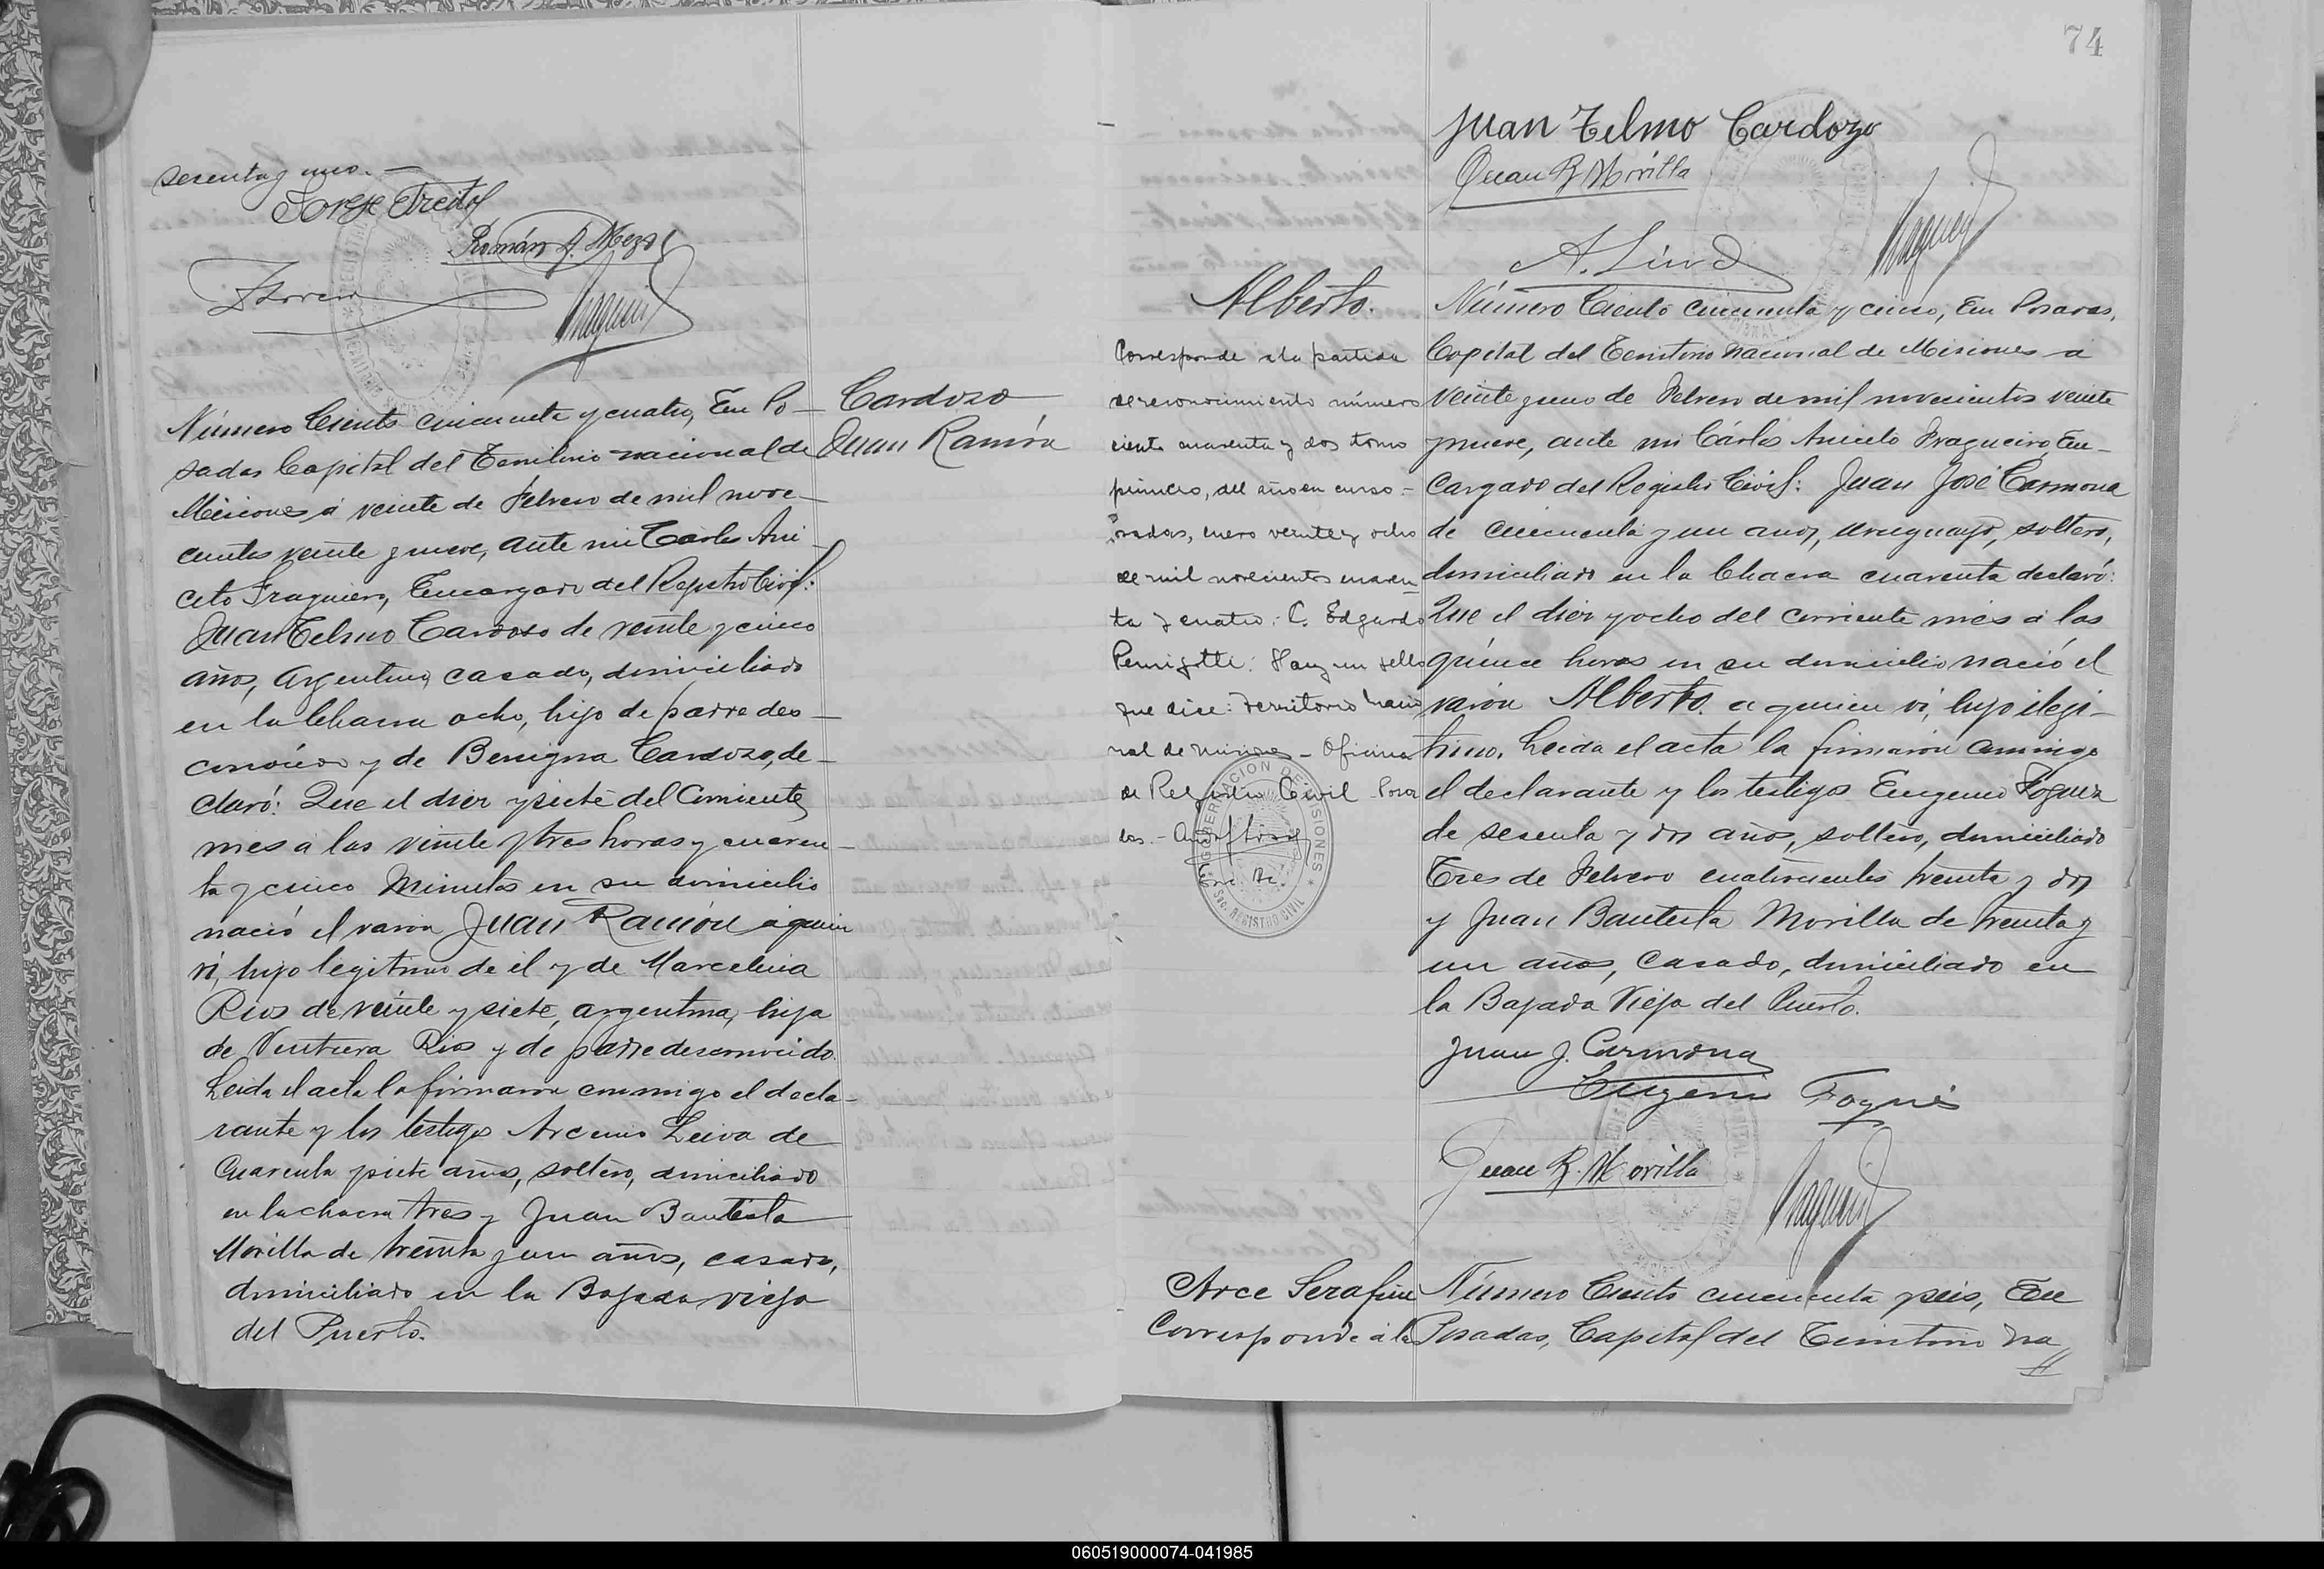 sesenta y uno.—
Jorge
Román A. Meza
Número Ciento cincuenta y cuatro, En Po-
sadas Capital del Territorio nacional de
Misiones á veinte de Febrero de mil nove-
cientos veinte y nueve, ante mi Carlos Ani-
ceto Fragueiro, Encargado del Registro Civil:
Juan Telmo Cardoso de veinte y cinco
años, Argentino, casado, domiciliado
en la Chacra ocho, hijo de padre des-
conocido y de Benigna Cardozo, de-
claró: Que el diez y siete del Corriente
mes a las veinte y tres horas y cuaren-
ta y cinco Minutos en su domicilio
nació el varon Juan Ramón a quien
ví, hijo legitimo de él y de Marcelina
Rios de veinte y siete, argentina, hija
de Ventura Rios y de padre desconocido.
Leida el acta la firmaron conmigo el decla-
rante y los testigos Arcenio Leiva de
Cuarenta y siete años, soltero, domiciliado
en la chacra tres y Juan Bautista
Morilla de treinta y un años, casado,
domiciliado en la Bajada vieja
del Puerto.
Cardozo
Juan Ramón
74
Juan Telmo Cardozo
Juan B Morilla
A. Lind
Alberto.
Corresponde a la partida
de reconocimiento número
ciento cuarenta y dos tomo
primero, del año en curso.-
Posadas, enero veinte y ocho
de mil novecientos cuaren-
ta y cuatro: C. Edgardo
Hay un sello
que dice: Territorio Nacio
nal de Misiones - Oficina
de Registro Civil - Posa
das.-
GOBERNACION DE MISIONES
REGISTRO CIVIL
Número Ciento cincuenta y cinco, En Posadas,
Capital del Territorio Nacional de Misiones a
veinte y uno de Febrero de mil novecientos veinte
y nueve, ante mi Cárlos Aniceto Fragueiro, En-
cargado del Registro Civil: Juan José Carmona
de cincuenta y un años, uruguayo, soltero,
domiciliado en la Chacra cuarenta declaró:
Que el diez y ocho del corriente mes a las
quince horas en su domicilio nació el
varón Alberto. a quien ví, hijo ilegi-
timo. Leida el acta la firmaron conmigo
el declarante y los testigos Eugenio Foguez
de sesenta y dos años, soltero, domiciliado
Tres de Febrero cuatrocientos treinta y dos
y Juan Bautista Morilla de treinta y
un años, casado, domiciliado en
la Bajada Vieja del Puerto.
Juan J. Carmona
Eugenio Foques
Juan B. Morilla
Arce Serafin
Corresponde á la
Número Ciento cincuenta y seis, En
Posadas, Capital del Territorio Na
060519000074-041985